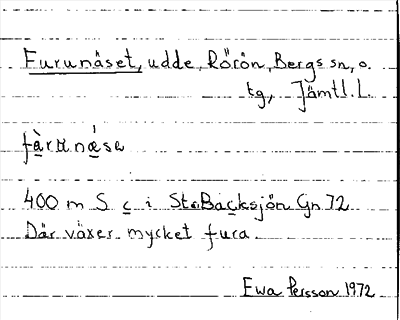 Furunäset, udde, Rörön, Bergs sn, o.
tg, Jämtl. L.
fàrunǽsa
400 m S c i St. Backsjön Gn 72
Där växer mycket fura.
Ewa Persson 1972